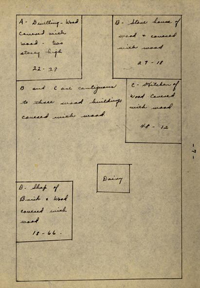 A - Dwelling - Wood
covered with
wood - One
story high
22 - 27
B - Store house of
wood & covered
with wood
27 - 18
B and C are contiguous
to these wood buildings
covered with wood
C - Kitchen of
wood covered
with wood
D - Shop of
Brick & Wood
covered with
wood
18 - 66
Dairy